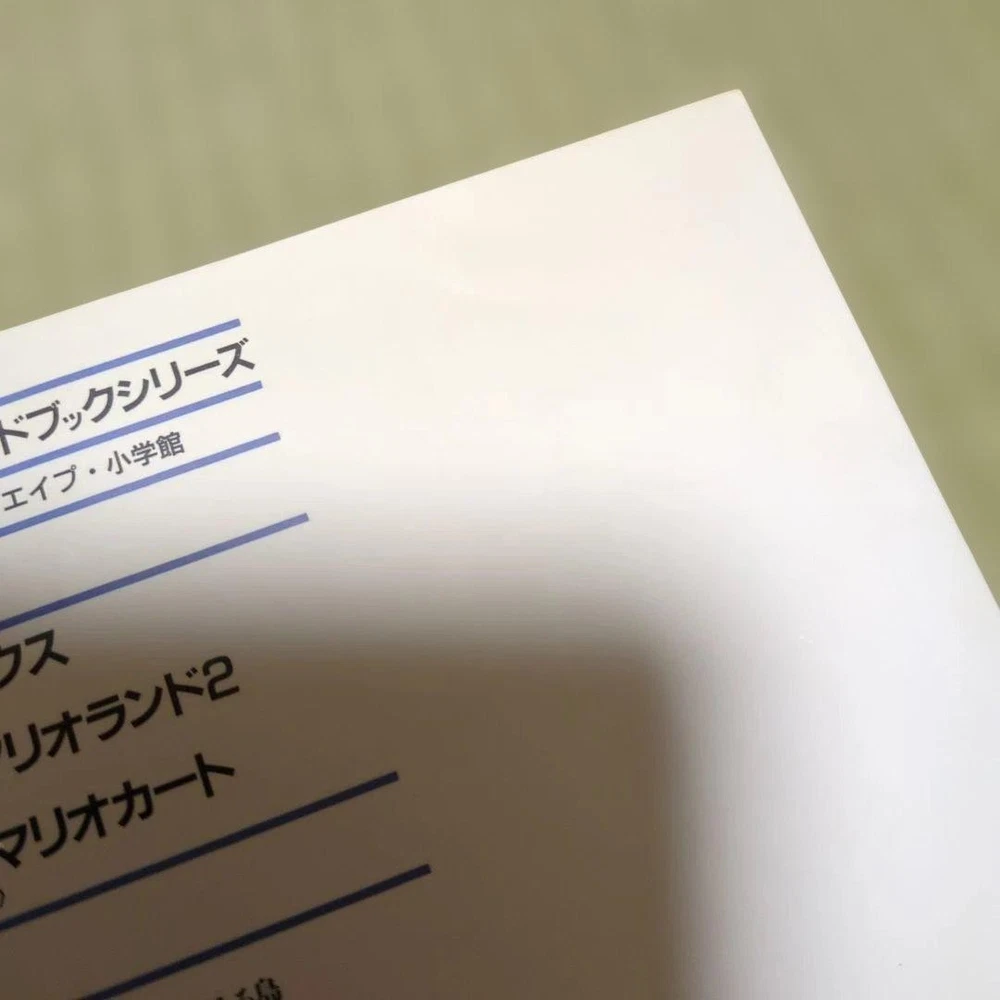 ドブックシリーズ
エイプ・小学館
クス
マリオランド2
マリオカート
る島